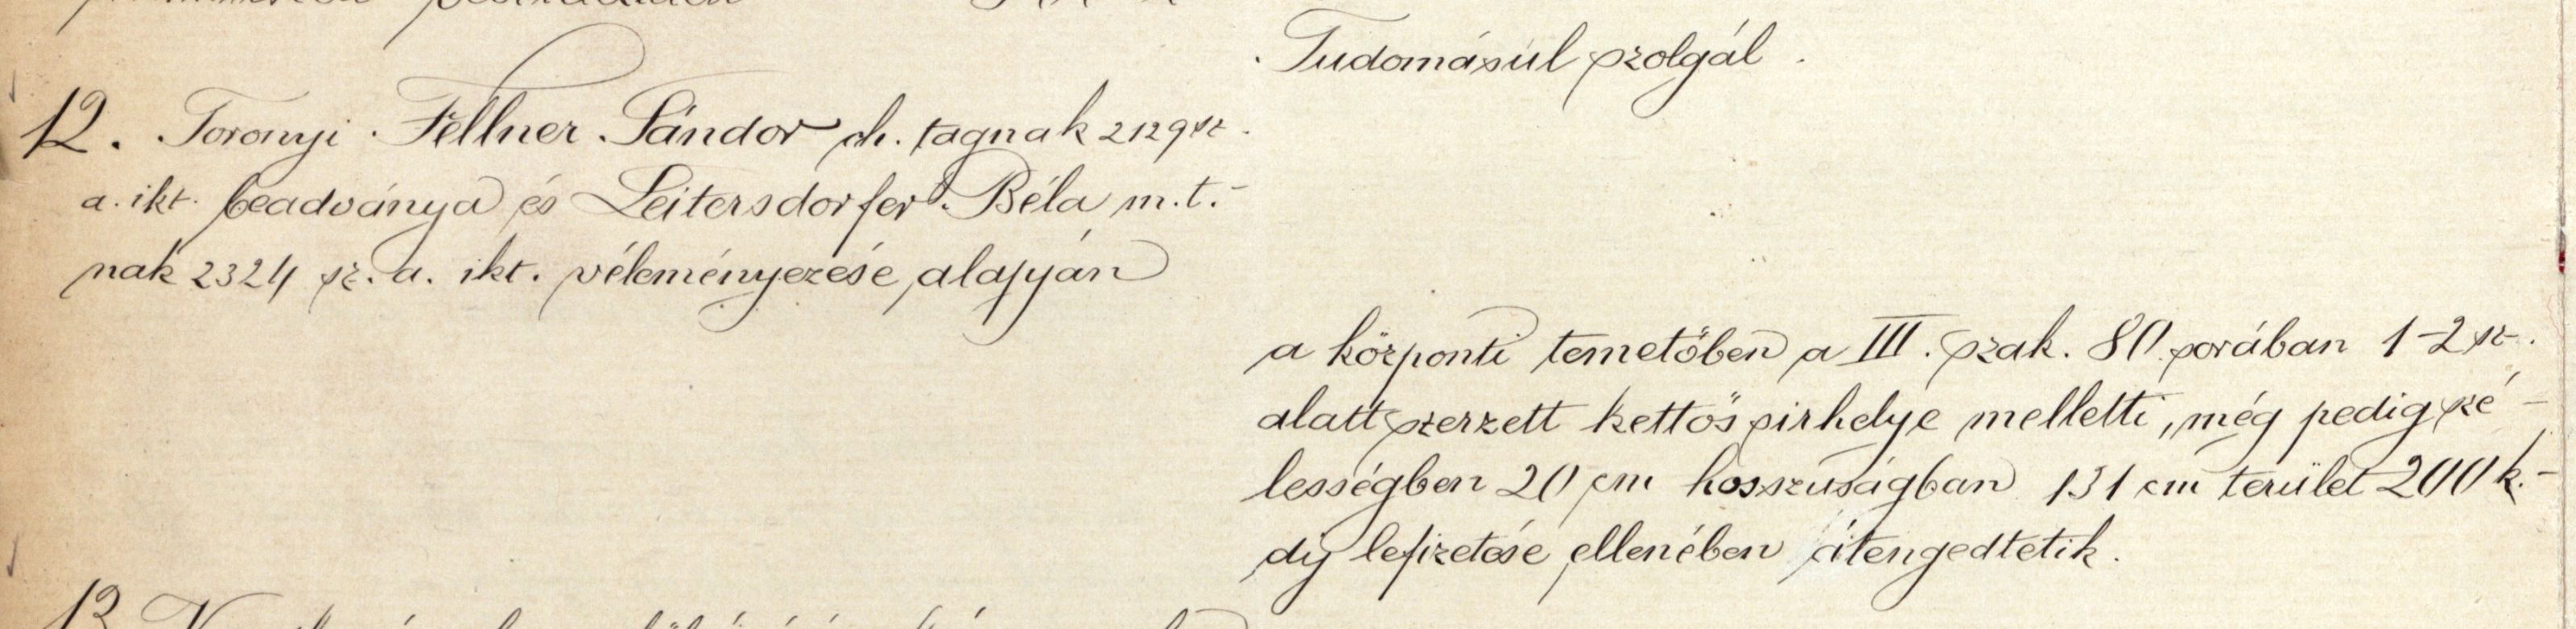 Tudomásúl szolgál.
12. Toronyi Fellner Sándor ch. tagnak 2129 sz.
a. ikt. beadványa és Leitersdorfer Béla m.t.-
nak 2324 sz. a. ikt. véleményezése alapján
a központi temetőben a III. szak. 80 sorában 1-2 sz.
alatt szerzett kettős sirhelye melletti, még pedig szé-
lességben 20 cm hosszuságban 131 cm terület 200 k.-
díj lefizetése ellenében átengedtetik.
13